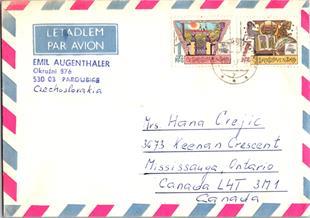 LETADLEM
PAR AVION
EMIL AUGENTHALER
Okružní 876
530 03 PARDUBICE
Czechoslovakia
ČESKOSLOVENSKO
ČESKOSLOVENSKO
Mrs. Hana Crejic
3673 Keenan Crescent
Mississauga, Ontario
Canada L4T 3M1
Canada